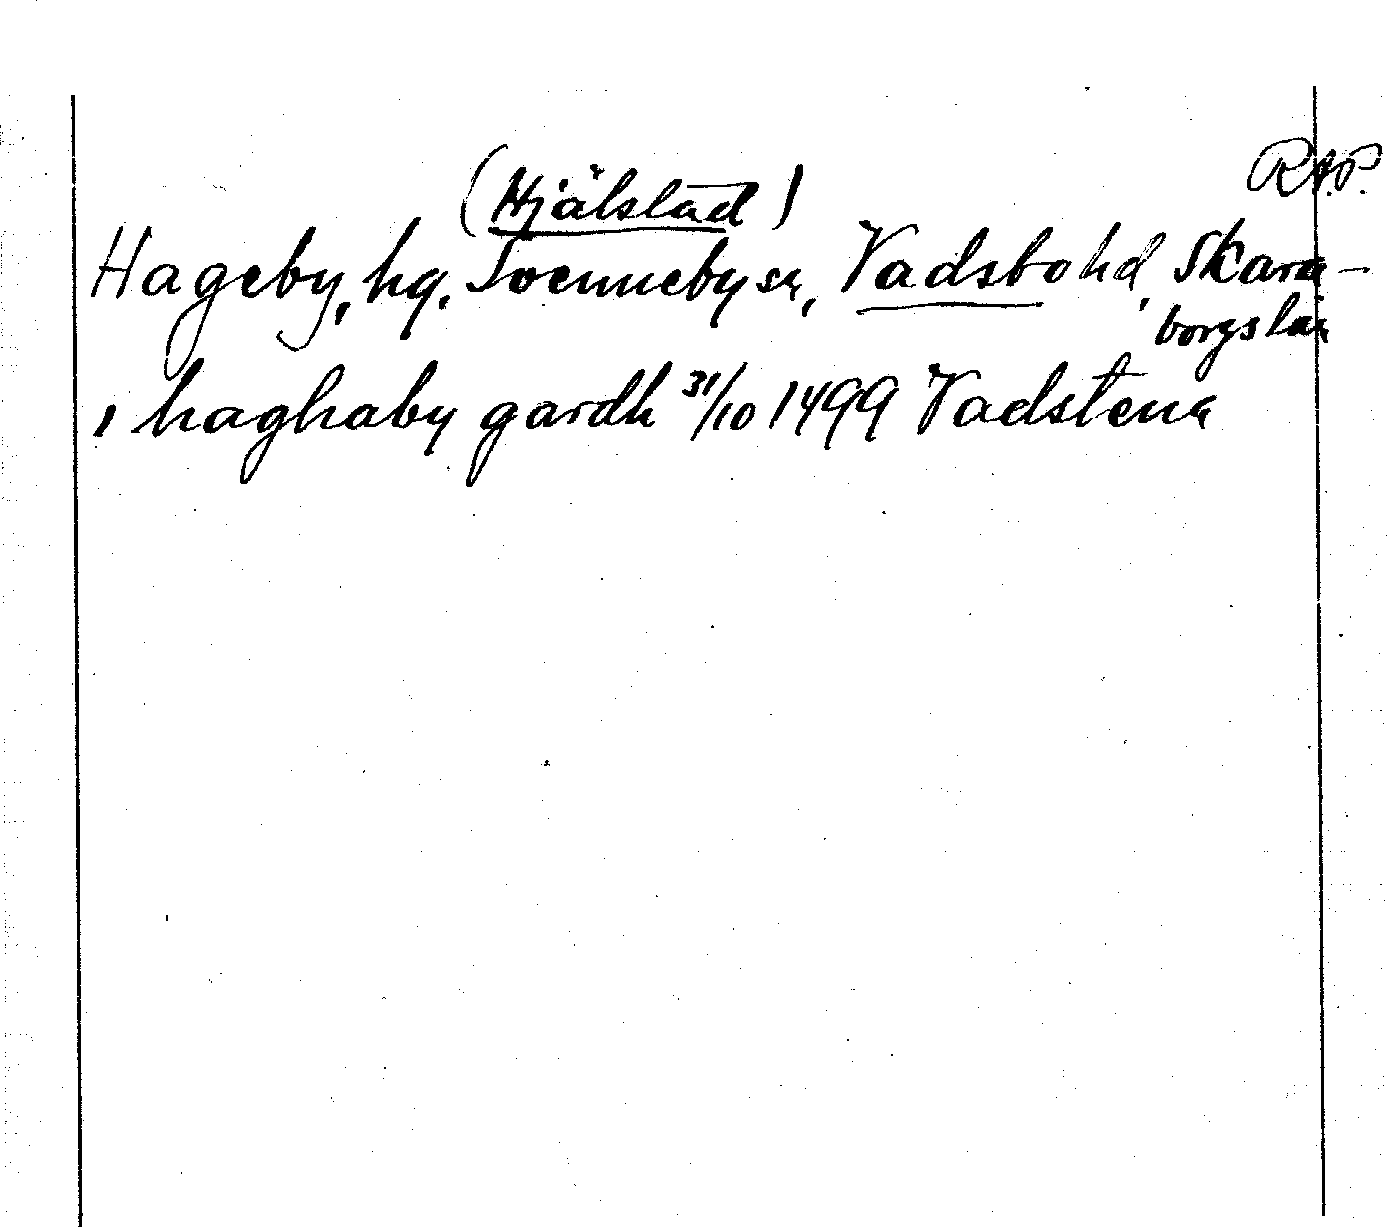 RAP.
(Hjälstad)
Hageby, hg, Svenneby sn, Vadsbo hd, Skara-
borgs län
i haghaby gardh 31/10 1499 Vadstena